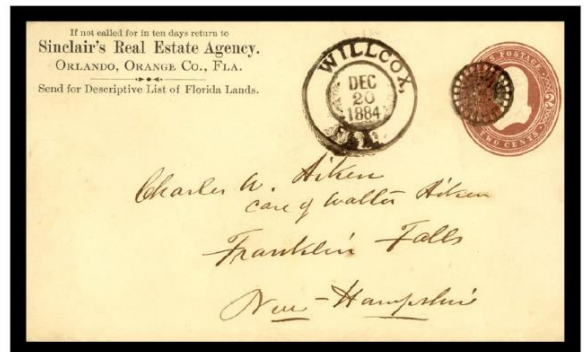 If not called for in ten days return to
Sinclair's Real Estate Agency.
ORLANDO, ORANGE CO., FLA.
Send for Descriptive List of Florida Lands.
WILLCOX,
DEC
20
1884
FLA.
POSTAGE
TWO CENTS
Charles W. Aiken
care of Walter Aiken
Franklin Falls
New-Hampshire